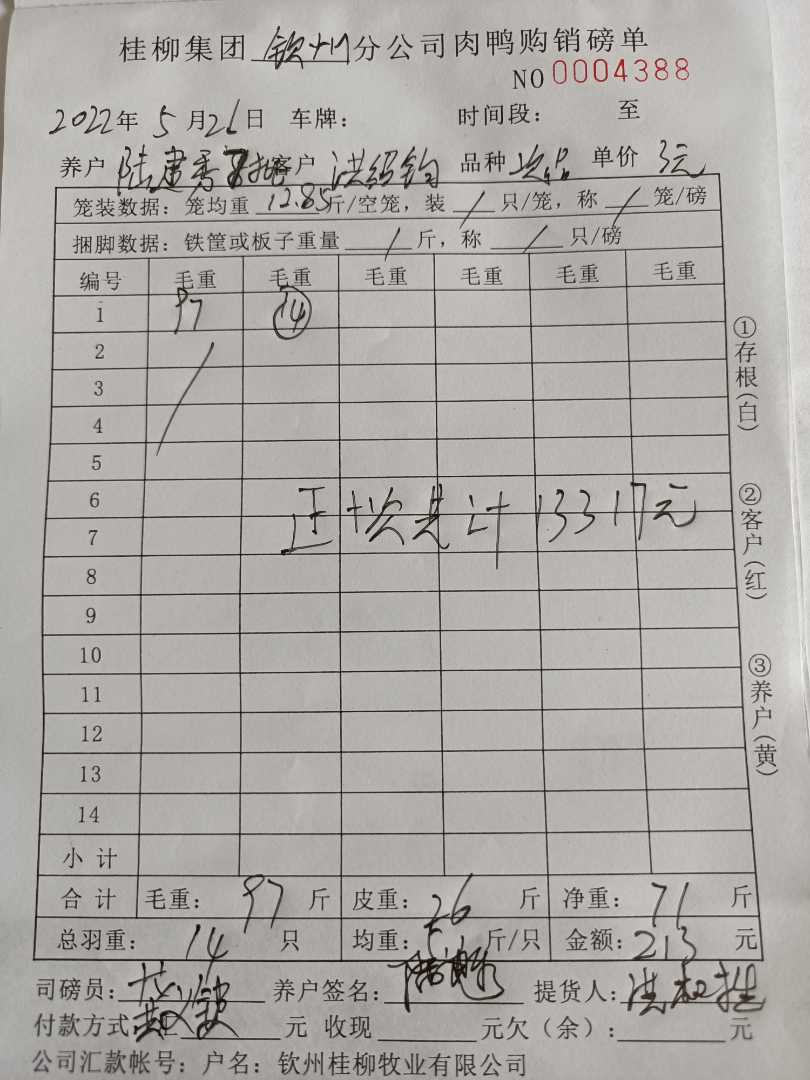 桂柳集团 钦州 分公司肉鸭购销磅单
NO 0004388
2022年 5 月 26 日 车牌： 时间段： 至
养户 陆建秀 客户 洪绍钧 品种 次品 单价 3元
笼装数据：笼均重 12.85 斤/空笼，装 / 只/笼，称 / 笼/磅
捆脚数据：铁筐或板子重量 / 斤，称 / 只/磅
编号 毛重 毛重 毛重 毛重 毛重 毛重
1 97 14
2
3
4
5
6
7
正+次共计13317元
8
9
10
11
12
13
14
小 计
合 计 毛重： 97 斤 皮重： 26 斤 净重： 71 斤
总羽重： 14 只 均重： 5.1 斤/只 金额： 213 元
司磅员： 养户签名： 提货人： 洪
付款方式： 元 收现 元欠（余）： 元
公司汇款帐号：户名：钦州桂柳牧业有限公司
①存根（白）
②客户（红）
③养户（黄）